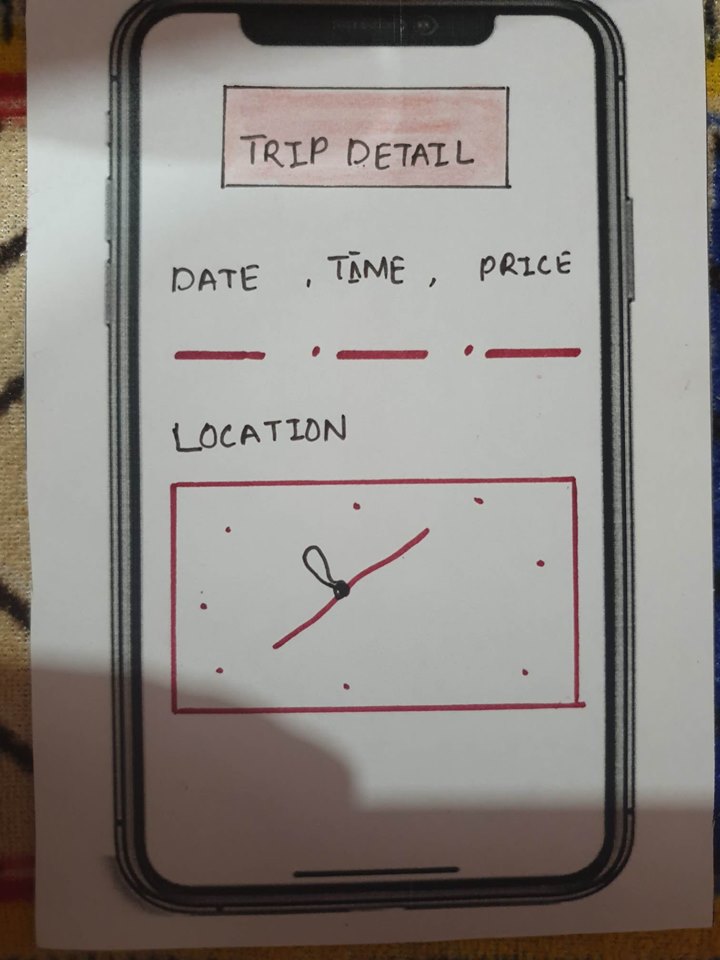 TRIP DETAIL
DATE , TIME , PRICE
LOCATION